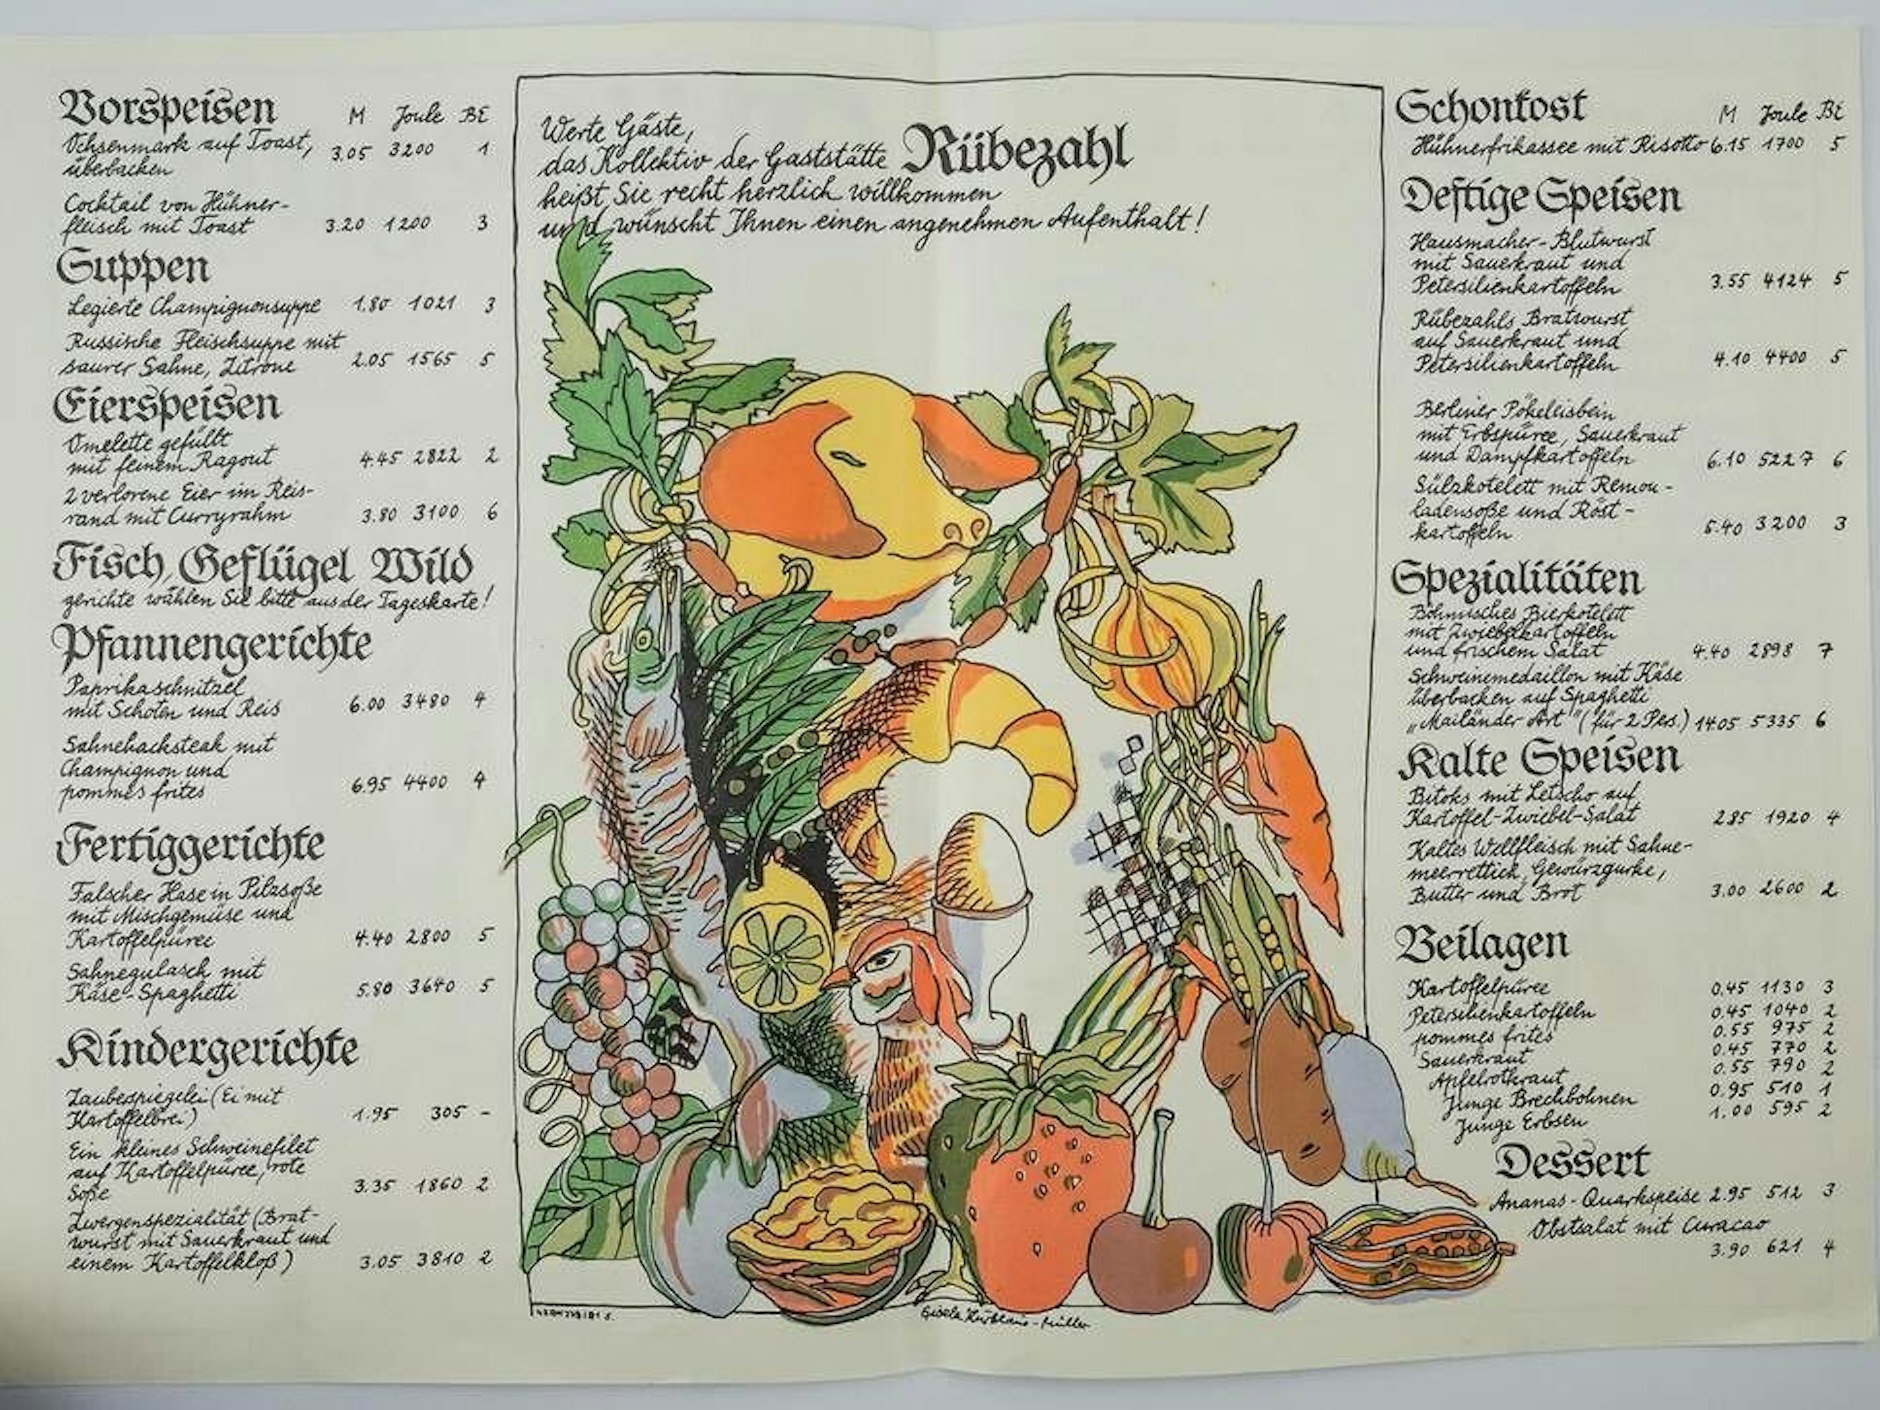 Vorspeisen M Joule BE
Ochsenmark auf Toast,
überbacken 3.05 3200 1
Cocktail von Hühner-
fleisch mit Toast 3.20 1200 3
Suppen
Legierte Champignonsuppe 1.80 1021 3
Russische Fleischsuppe mit
saurer Sahne, Zitrone 2.05 1565 5
Eierspeisen
Omelette gefüllt
mit feinem Ragout 4.45 2822 2
2 verlorene Eier im Reis-
rand mit Curryrahm 3.80 3100 6
Fisch, Geflügel Wild
gerichte wählen Sie bitte aus der Tageskarte!
Pfannengerichte
Paprikaschnitzel
mit Schoten und Reis 6.00 3480 4
Sahnehacksteak mit
Champignon und
pommes frites 6.95 4400 4
Fertiggerichte
Falscher Hase in Pilzsoße
mit Mischgemüse und
Kartoffelpüree 4.40 2800 5
Sahnegulasch mit
Käse-Spaghetti 5.80 3640 5
Kindergerichte
Zauberspiegelei (Ei mit
Kartoffelbrei) 1.95 305 -
Ein kleines Schweinefilet
auf Kartoffelpüree, rote
Soße 3.35 1860 2
Zwergenspezialität (Brat-
wurst mit Sauerkraut und
einem Kartoffelkloß) 3.05 3810 2
Werte Gäste,
das Kollektiv der Gaststätte Rübezahl
heißt Sie recht herzlich willkommen
und wünscht Ihnen einen angenehmen Aufenthalt!
Schonkost M Joule BE
Hühnerfrikassee mit Risotto 6.15 1700 5
Deftige Speisen
Hausmacher-Blutwurst
mit Sauerkraut und
Petersilienkartoffeln 3.55 4124 5
Rübezahls Bratwurst
auf Sauerkraut und
Petersilienkartoffeln 4.10 4400 5
Berliner Pökeleisbein
mit Erbspüree, Sauerkraut
und Dampfkartoffeln 6.10 5227 6
Sülzkotelett mit Remou-
ladensoße und Röst-
kartoffeln 5.40 3200 3
Spezialitäten
Böhmisches Bierkotelett
mit Zwiebelkartoffeln
und frischem Salat 4.40 2898 7
Schweinemedaillon mit Käse
überbacken auf Spaghetti
„Mailänder Art" (für 2 Pers.) 14.05 5335 6
Kalte Speisen
Bitoks mit Letscho auf
Kartoffel-Zwiebel-Salat 2.85 1920 4
Kaltes Wellfleisch mit Sahne-
meerrettich, Gewürzgurke,
Butter und Brot 3.00 2600 2
Beilagen
Kartoffelpüree 0.45 1130 3
Petersilienkartoffeln 0.45 1040 2
pommes frites 0.55 975 2
Sauerkraut 0.45 770 2
Apfelrotkraut 0.55 790 2
Junge Brechbohnen 0.95 510 1
Junge Erbsen 1.00 595 2
Dessert
Ananas-Quarkspeise 2.95 512 3
Obstsalat mit Curacao
3.90 621 4
Gisela